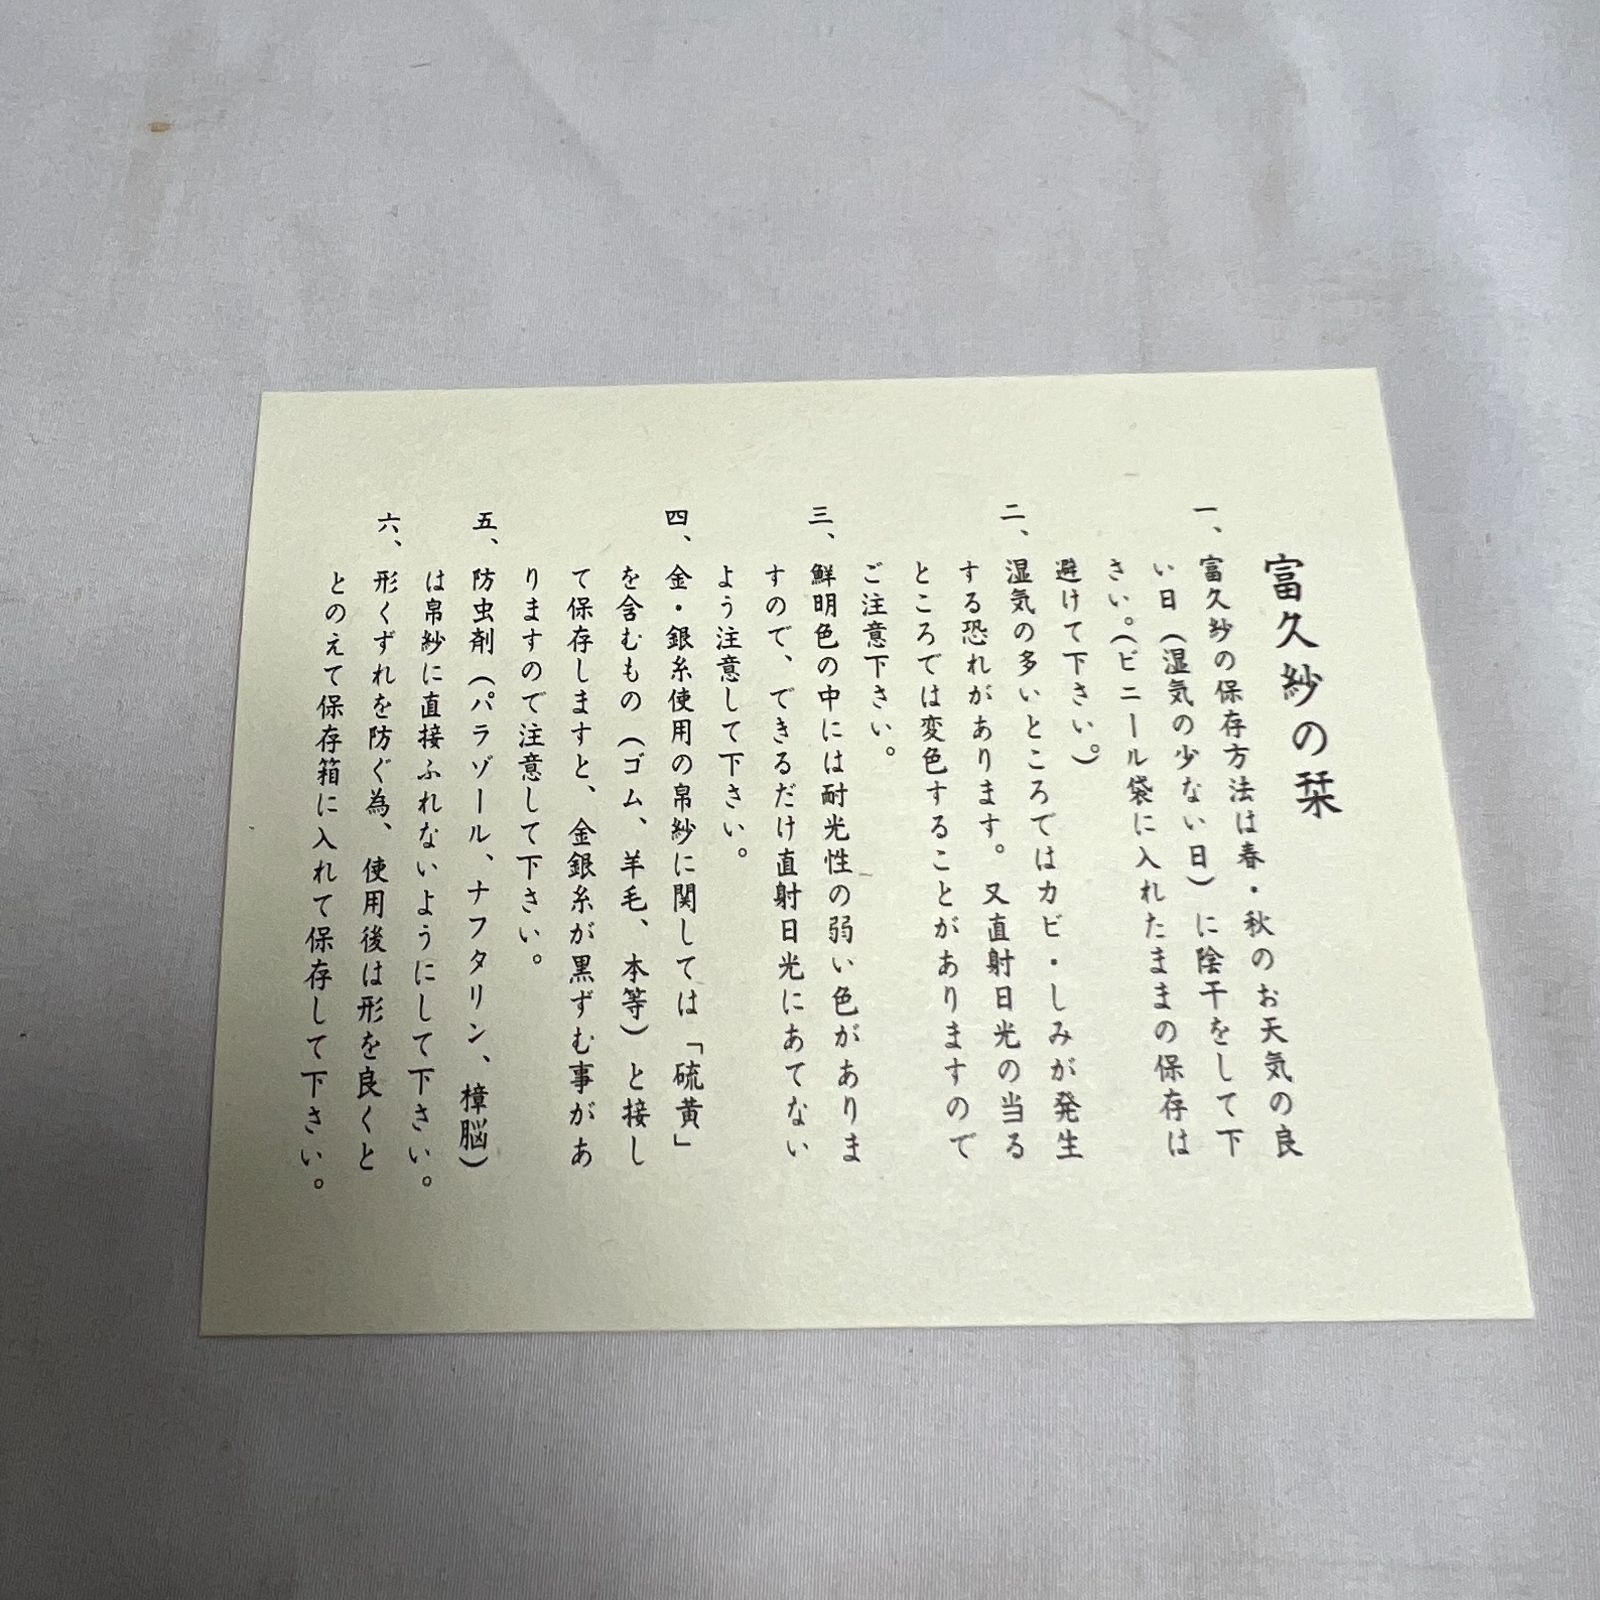 富久紗の栞
一、富久紗の保存方法は春・秋のお天気の良
い日（湿気の少ない日）に陰干をして下
さい。（ビニール袋に入れたままの保存は
避けて下さい。）
二、湿気の多いところではカビ・しみが発生
する恐れがあります。又直射日光の当る
ところでは変色することがありますので
ご注意下さい。
三、鮮明色の中には耐光性の弱い色がありま
すので、できるだけ直射日光にあてない
よう注意して下さい。
四、金・銀糸使用の帛紗に関しては「硫黄」
を含むもの（ゴム、羊毛、本等）と接し
て保存しますと、金銀糸が黒ずむ事があ
りますので注意して下さい。
五、防虫剤（パラゾール、ナフタリン、樟脳）
は帛紗に直接ふれないようにして下さい。
六、形くずれを防ぐ為、使用後は形を良くと
とのえて保存箱に入れて保存して下さい。